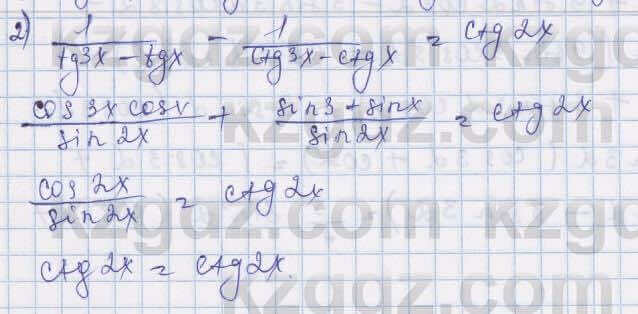 2) 1/(tg3x - tgx) - 1/(ctg3x - ctgx) = ctg 2x
cos 3x cosx/sin 2x + sin3 + sinx/sin2x = ctg2x
cos 2x/sin 2x = ctg 2x
ctg 2x = ctg 2x.
kzgdz.com